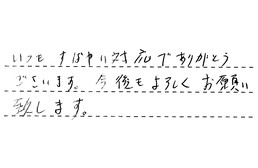 いつも すばやい対応でありがとう
ございます。今後もよろしくお願い
致します。